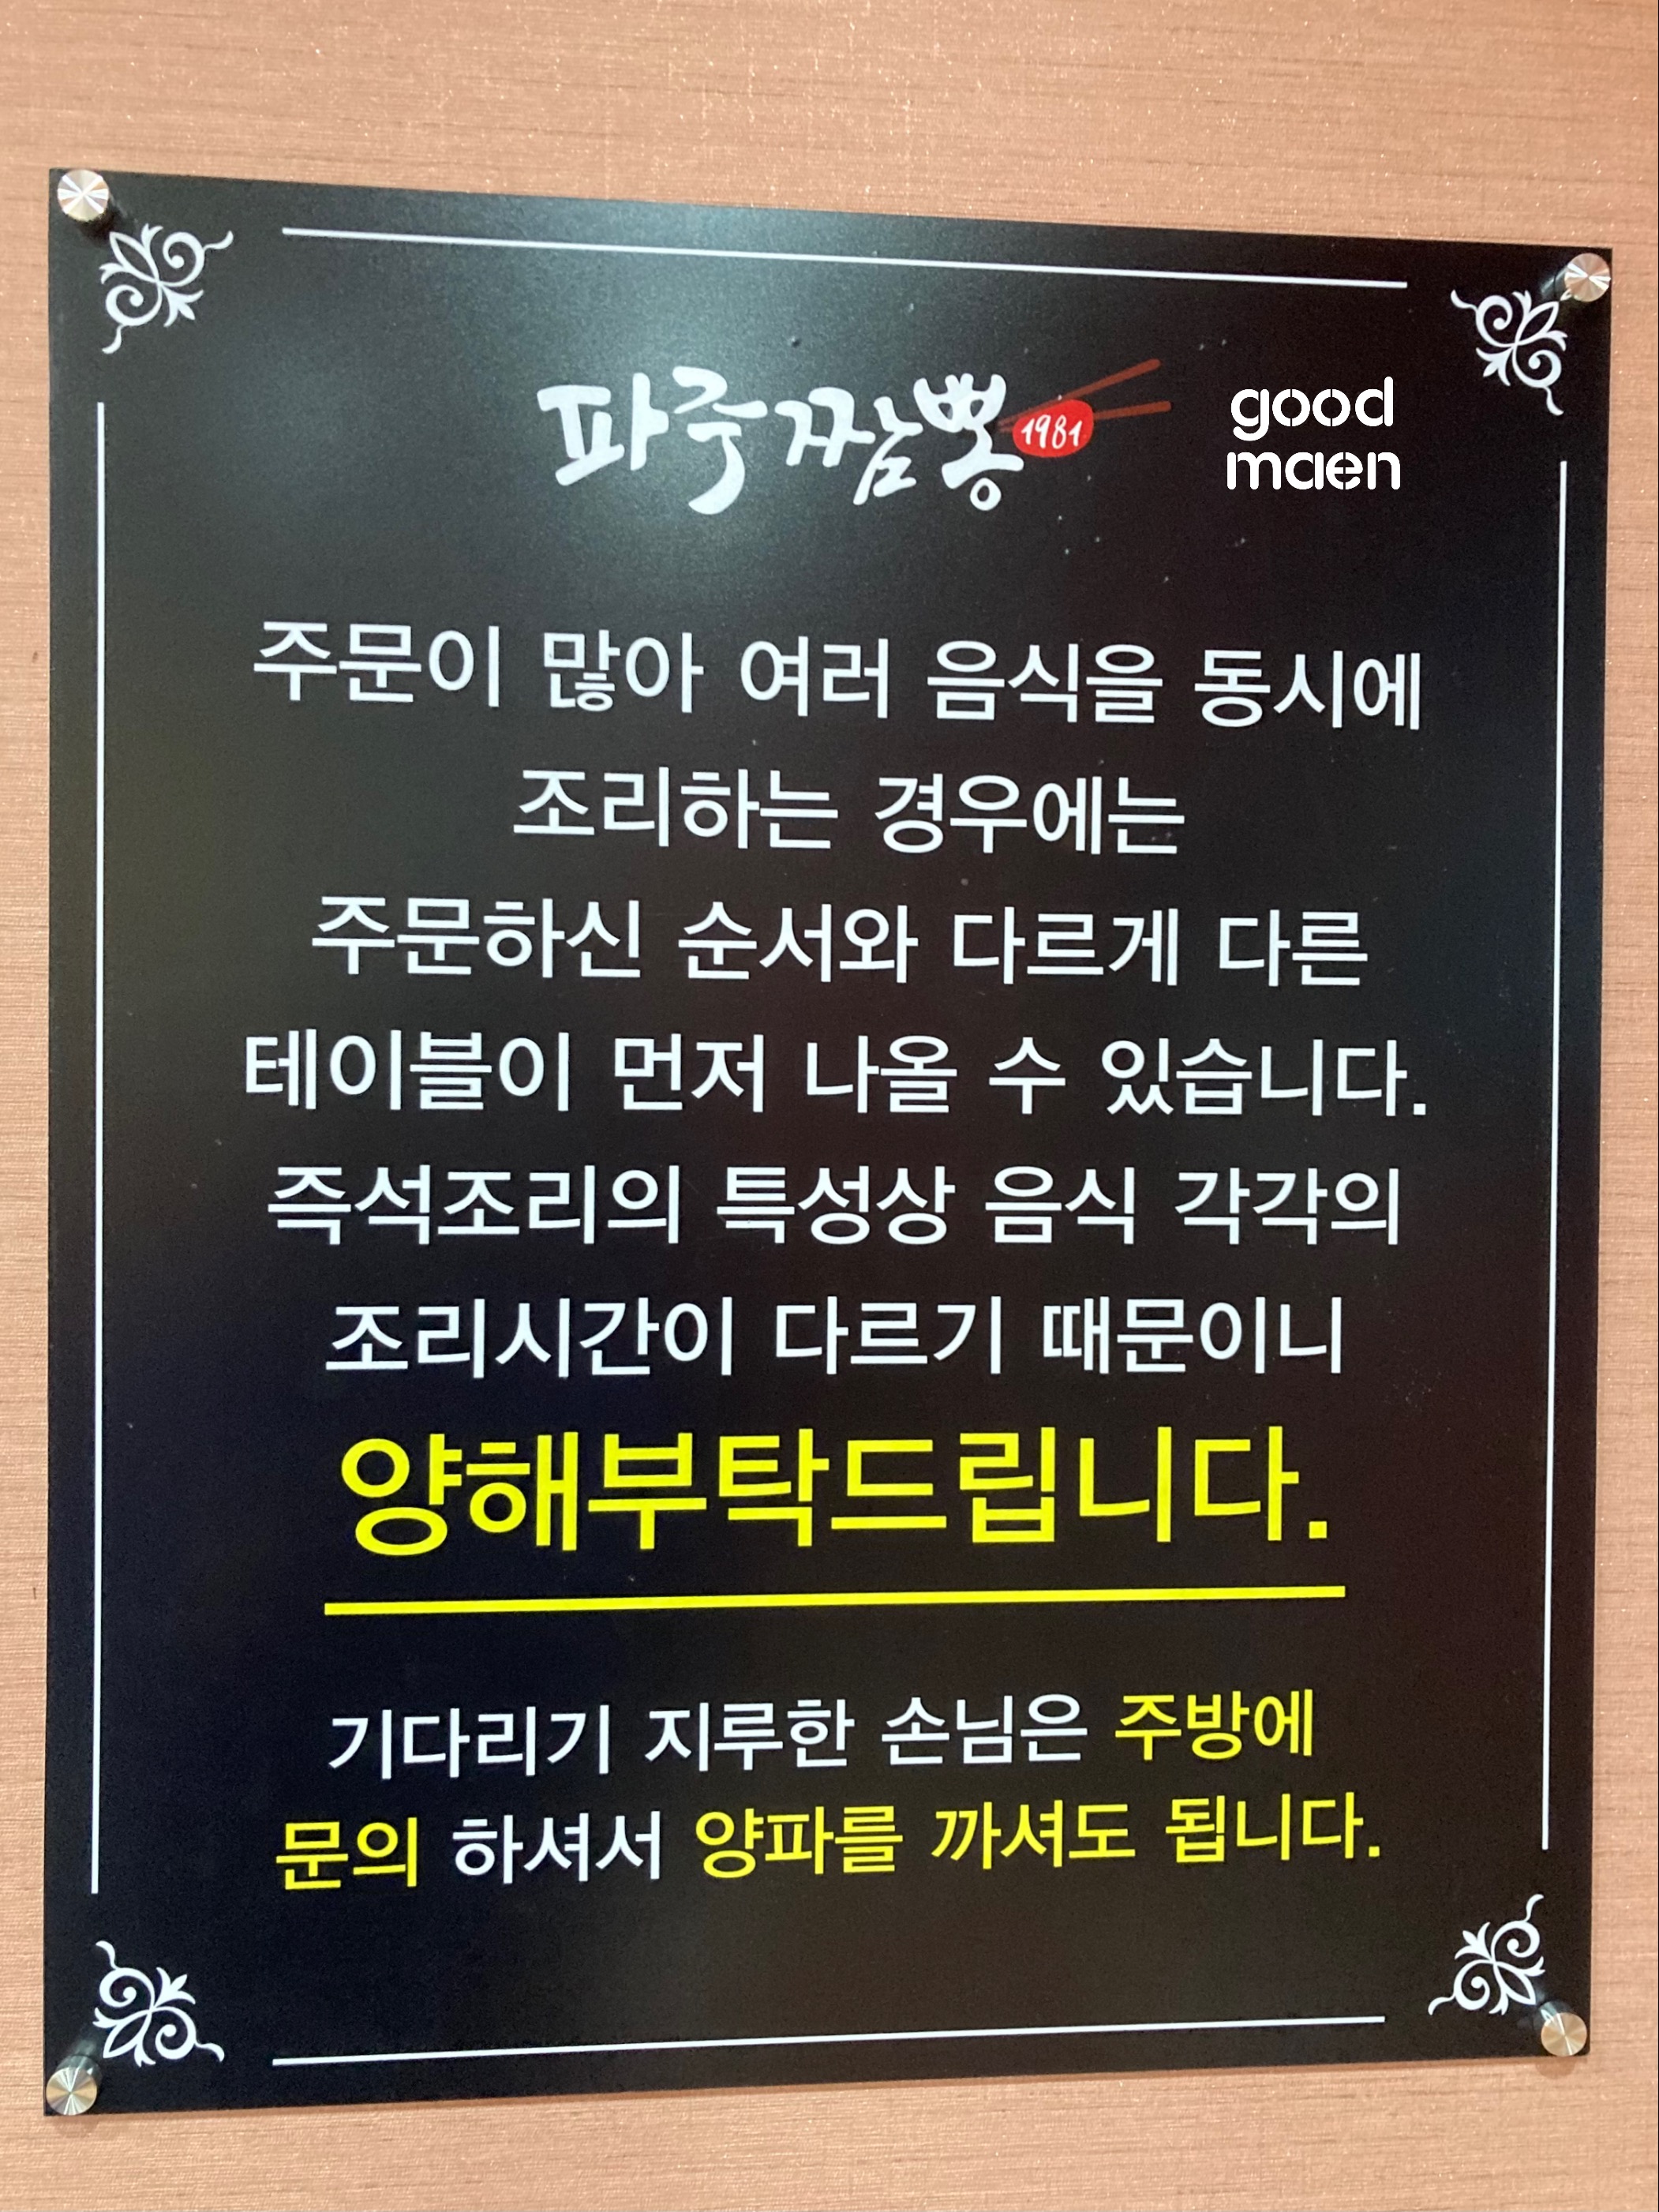 파주짬뽕 1981
good
maen
주문이 많아 여러 음식을 동시에
조리하는 경우에는
주문하신 순서와 다르게 다른
테이블이 먼저 나올 수 있습니다.
즉석조리의 특성상 음식 각각의
조리시간이 다르기 때문이니
양해부탁드립니다.
기다리기 지루한 손님은 주방에
문의 하셔서 양파를 까셔도 됩니다.